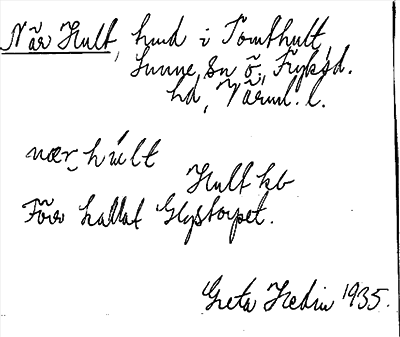 När Hult, hmd i Tomthult,
Sunne sn ö, Fryksd.
hd, Värml. l.
nær_ húlt
Hult kb
Förr kallat Glystorpet.
Greta Hedin 1935.